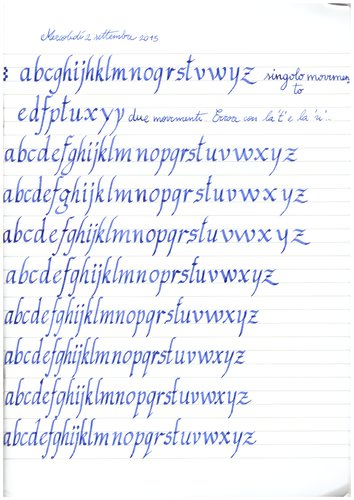 Mercoledì 2 settembre 2015
abcghijhklmnogrstvwyz singolo movimen
to
edfptuxyy due movimenti. Errore con la 't' e la 'u'..
abcdefghijklmnopqrstuvwxyz
abcdefghijklmnopqrstuvwxyz
abcdefghijklmnopqrstuvwxyz
abcdefghijklmnoprstuvwxyz
abcdefghijklmnopqrstuvwxyz
abcdefghijklmnopqrstuvwxyz
abcdefghijklmnopqrstuvwxyz
abcdefghijklmnopqrstuvwxyz